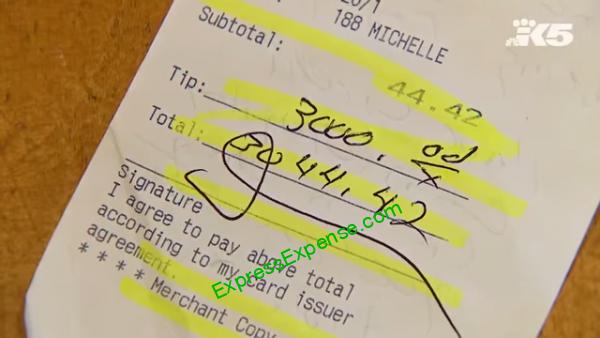 K5
188 MICHELLE
Subtotal:
44.42
Tip:
3000.
Total:
3044.42
Signature
I agree to pay above total
according to my card issuer
agreement.
* * * * Merchant Copy
ExpressExpense.com